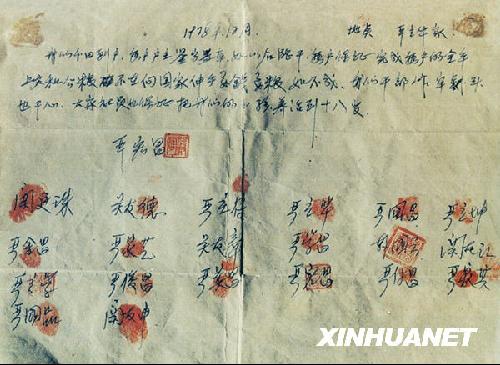 1978年12月 地点 严立华家
我们分田到户，每户户主签字盖章，如以后能干，每户保证完成每户的全年
上交和公粮，不在向国家伸手要钱要粮，如不成，我们干部作牢剎头
也干心，大家社员也保证把我们的小孩养活到十八岁。
严宏昌
关友德 严立华 严国昌 严立坤
严金昌 严家芝 关友章 严学昌 韩国云
严俊昌 严美昌 严宏昌 严付昌 严家其
严国品 关友申
XINHUANET